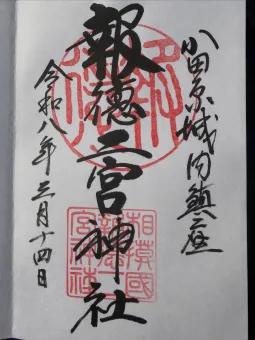 小田原城内鎮座
報徳二宮神社
令和八年三月十四日
相模國
報徳二
宮神社